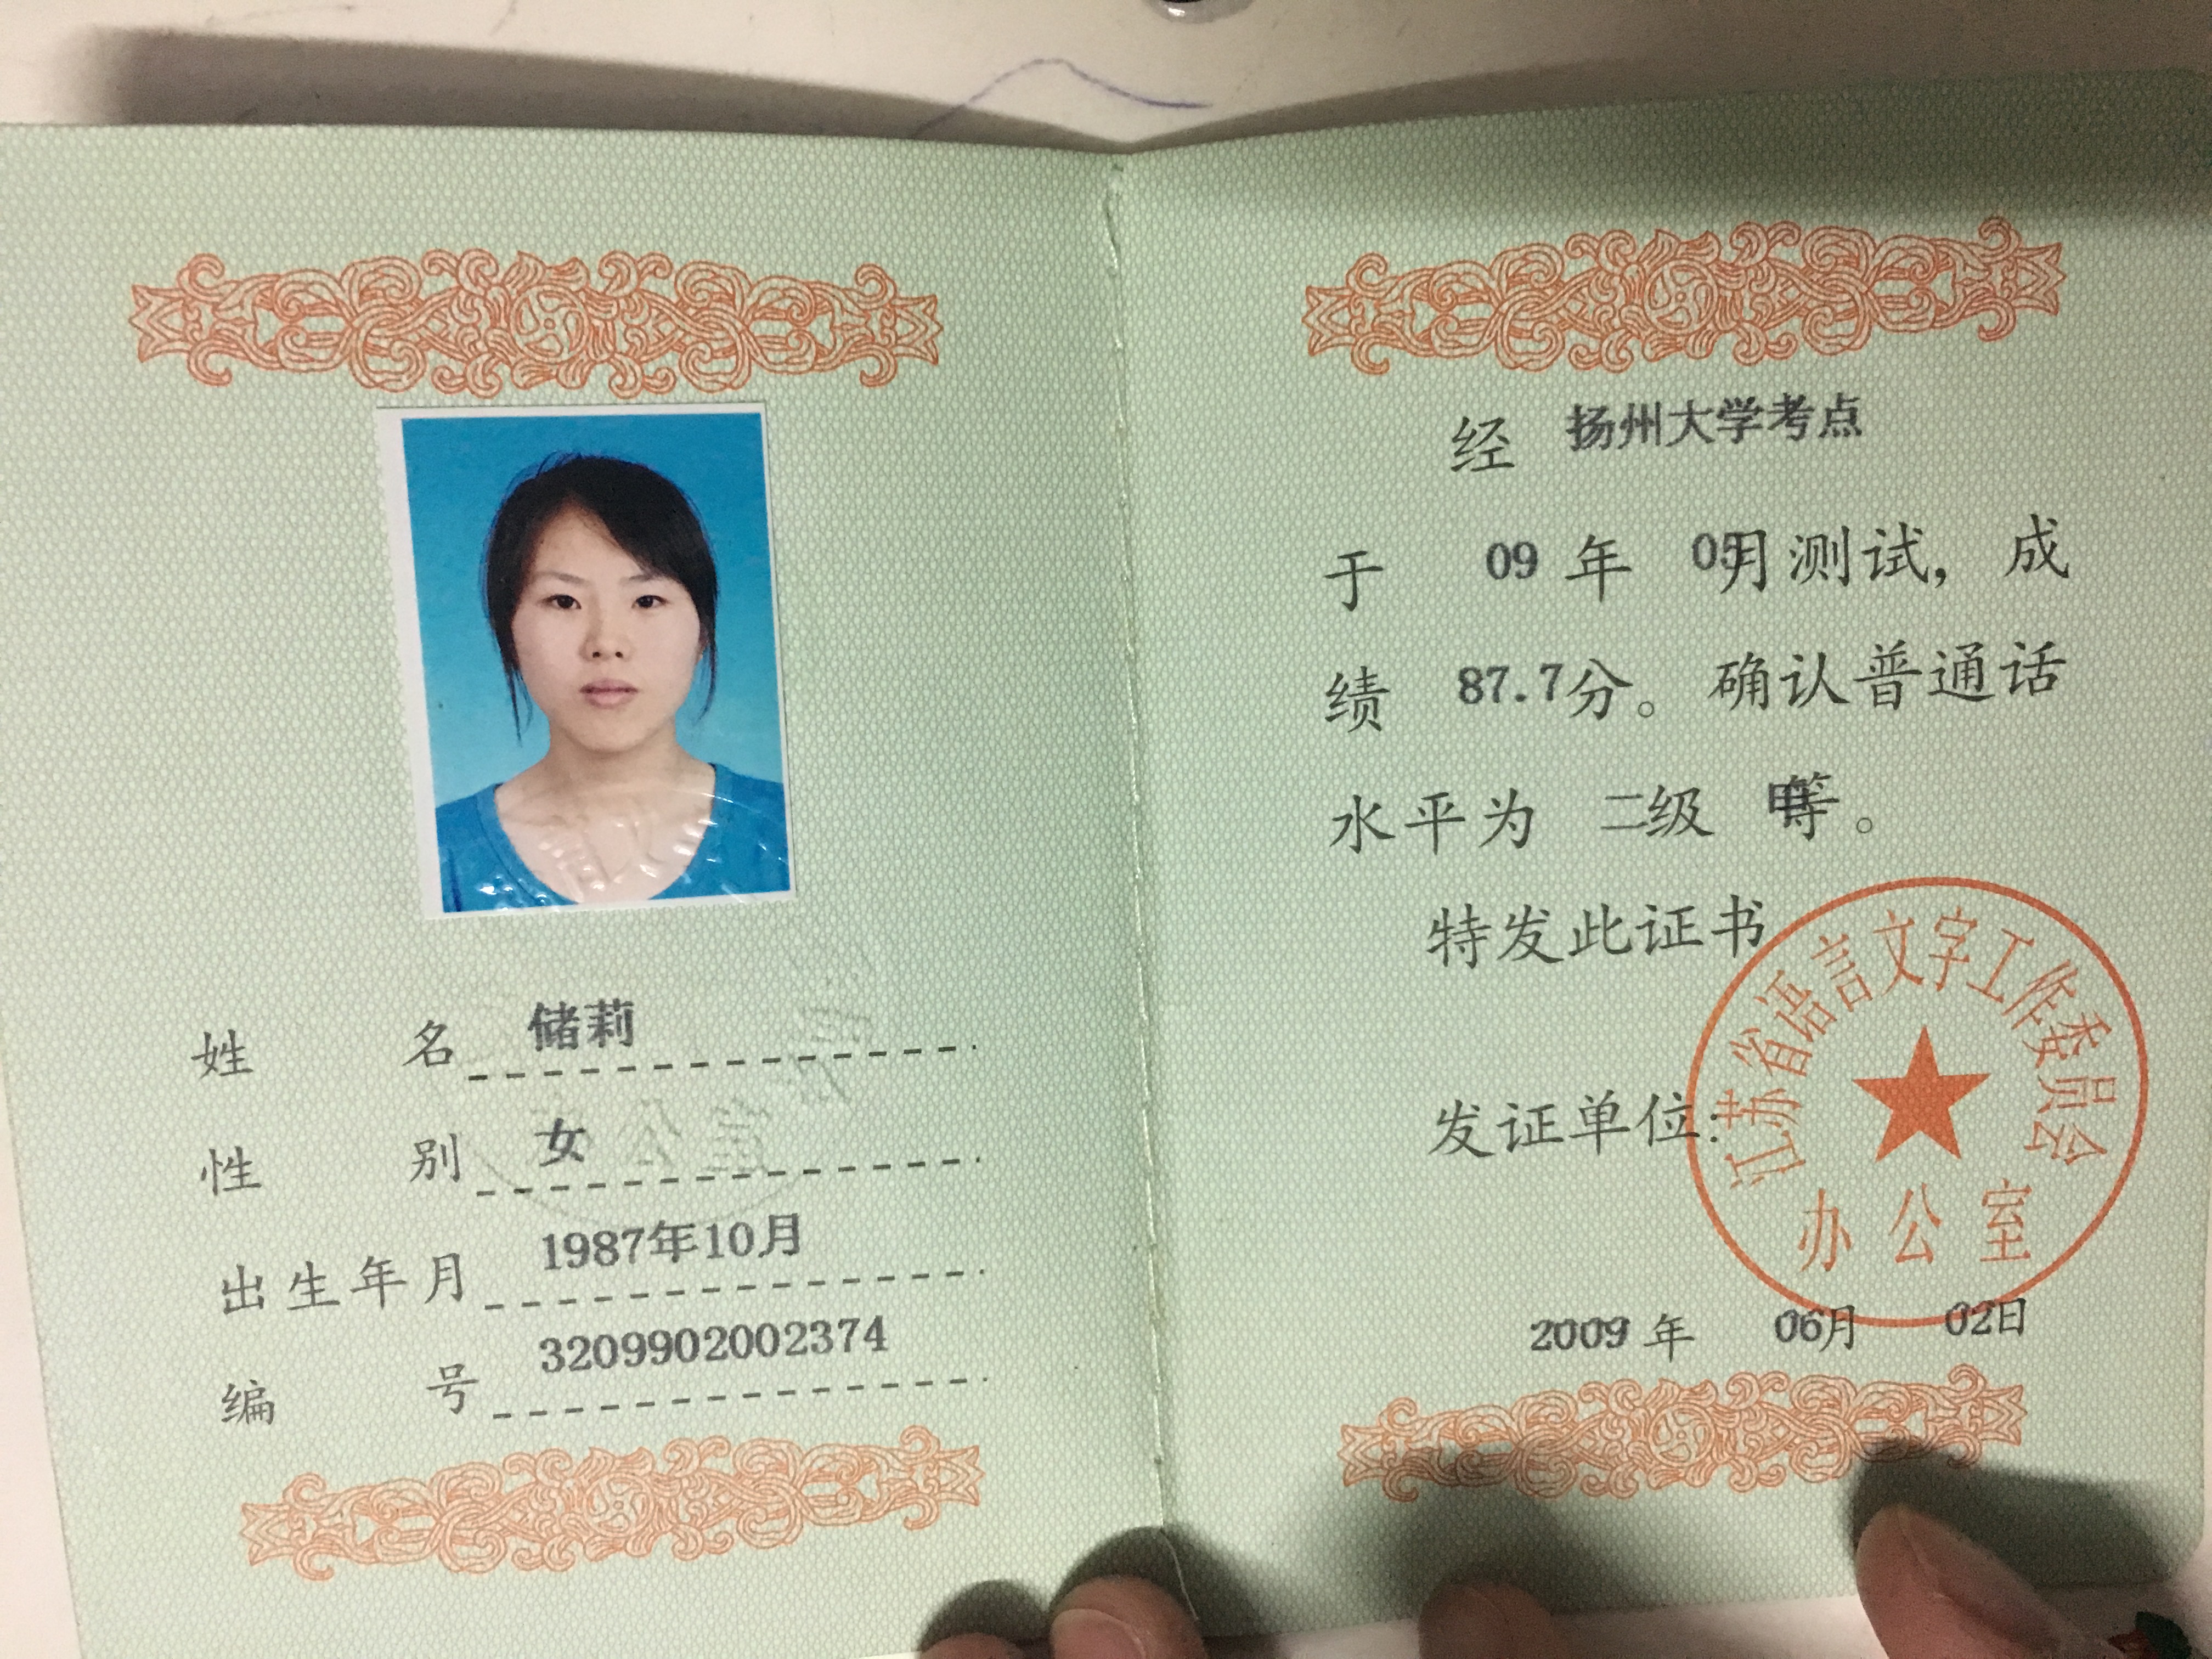 姓名 储莉
性别 女
出生年月 1987年10月
编号 3209902002374
经 扬州大学考点
于 09 年 05月测试，成
绩 87.7分。确认普通话
水平为 二级 甲等。
特发此证书
发证单位：
江苏省语言文字工作委员会
办公室
2009年 06月 02日